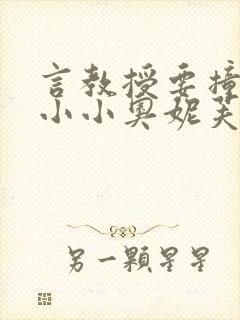 言教授要撞
小小奥妮芙
另一顆星星